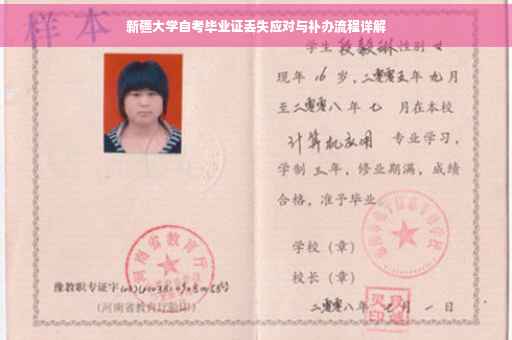 新疆大学自考毕业证丢失应对与补办流程详解
样本
学生 段毅琳 性别 女
现年 16 岁，二零零五年 九 月
至二零零八年 七 月在本校
计算机应用 专业学习，
学制 三 年，修业期满，成绩
合格，准予毕业。
学校（章）
校长（章）
二零零八年 七 月 一 日
河南省教育厅
豫教职专证字
（河南省教育厅验印）